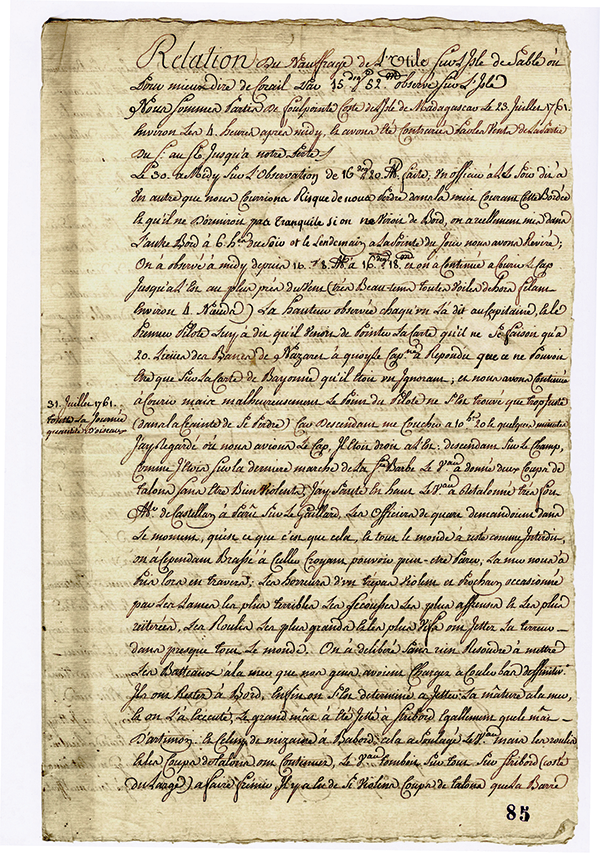 Relation Du Naufrage de L'Utile Sur L'Isle de Sable ou
Pour mieux dire de Corail Par 15 deg 52 m observé Sur L'Isle
Nous Sommes Partis de foulpointe Coste de L'isle de Madagascar Le 23. Juillet 1761.
Environ Les 4. heures après midy, et avons été Contrariés Par les Vents de La Partie
Du S. au Se. Jusqu'à notre Perte
Le 30. à Midy Sur L'Observation de 16 deg 20 M. faite, Un officier à dit Le Soir à
Un autre que nous Courrions Risque de nous Perdre dans la nuit Courant Cette Bordée
et qu'il ne Dormiroit pas tranquile si on ne Viroit de Bord, on a réellement mis dans
L'autre Bord à 6. h. du Soir et Le Lendemain à La Pointe du Jour nous avons Reviré;
On à observé à midy depuis 16. à 16 deg 18 m et on à Continué à Courir Le Cap
Jusqu'à L'Est au plus près du Vent (très Beau tem toutes Voiles dehors filant
Environ 4. Nœuds) La hauteur observée chaqu'un L'à dit au Capitaine, et le
Premier Pilote Luy à dit qu'il Venoit de Pointer La Carte qu'il ne Se faisoit qu'à
20. Lieües des Bancs de Nazaret à quoy Le Cap. à Repondu que ce ne Pouvoit
être que Sur La Carte de Bayonne qu'il étoit un Ignorant, et nous avons Continué
à Courir mais malheureusement Le Point du Pilote ne S'est trouvé que trop Juste
31. Juillet 1761.
toute La Journée
quantité d'oiseaux
(dans la Crainte de Se Perdre) Car Descendant me Coucher à 10 h 20 et quelques minutes
J'ay Regardé où nous avions Le Cap, Il étoit droit à L'Est; descendant Sur Le Champ,
Comme J'étois Sur la derniere marche de La Ste Barbe Le Veau à donné deux Coups de
talons Sans être Bien Violents, J'ay Sauté En haut Le Veau à Retalonné très fort
M. de Castellan à Paru Sur Le Gaillard, Les Officiers de quart demandoient dans Le
Moment, qu'est ce que c'est que cela, et tout le monde à resté comme Interdit,
on à Cependant Brassé à Culler Croyant pouvoir peut-être Parer, La mer nous à
Pris Lors en travers; Les horreurs d'un trepas Violent et Prochain occasionné
par Les Lames Les plus terribles Les Secousses Les plus affreuses et Les plus
réiterées, Les Roulis Les plus grands et les plus vifs ont Jetté La terreur
dans presque tout Le monde. On à délibéré Sans rien Resoudre à mettre
Les Batteaux à La mer que nos gens avoient Chargés à Couler bas
Ils ont Resté à Bord, Enfin on S'est determiné à Jetter La mâture à La mer,
et on L'à Executé, Le grand mât à été Jetté à Stribord Egallement que le mât
D'artimon et Celuy de mizaine à Babord, cela à Soulagé Le Veau mais les roulis
et les Coups de talons ont Continués, Le Veau tomboit Sur tout Sur Stribord (coste
du Large) à faire frémir Il y à eu de Si Violents Coups de talons que La Barre
85